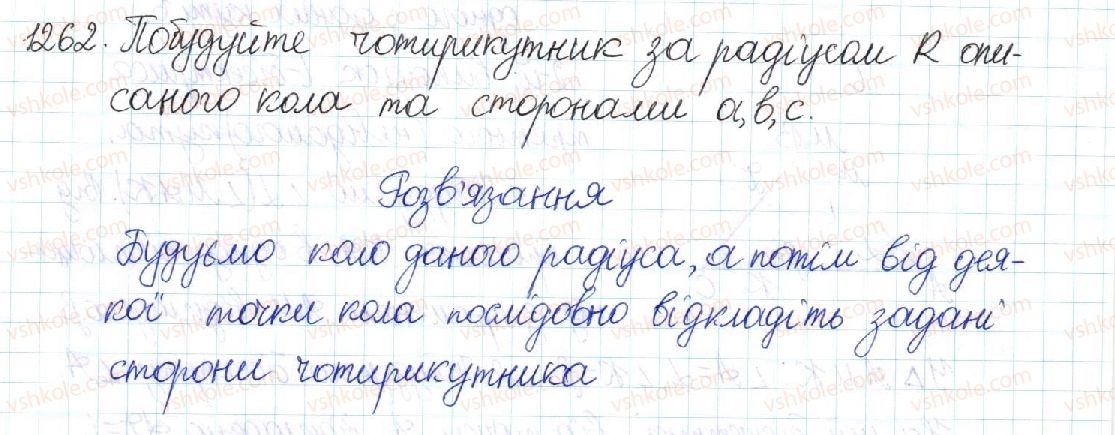 1262. Побудуйте чотирикутник за радіусом R опи-
саного кола та сторонами a, b, c.
Розв'язання
Будуємо коло даного радіуса, а потім від дея-
кої точки кола послідовно відкладіть задані
сторони чотирикутника